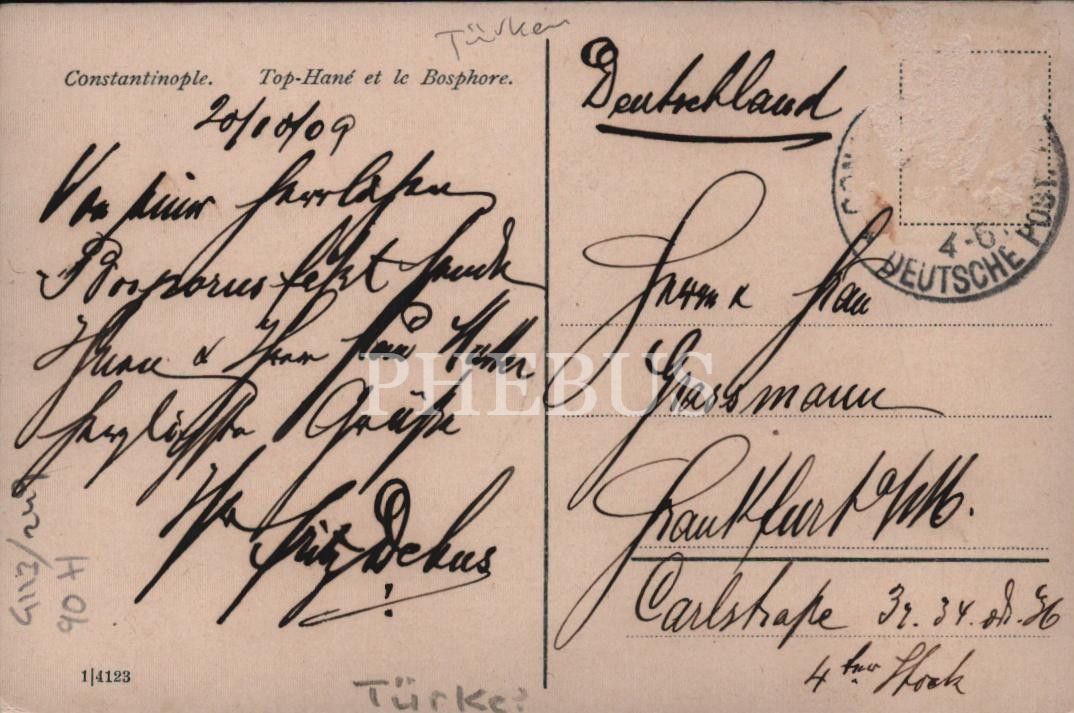 Türkei
Constantinople. Top-Hané et le Bosphore.
20/10/09
Von einer herrlichen
Bosporusfahrt sende
Ihnen & Ihrer
herzlichste Grüße
Ihr
Fritz Debus
!
90 H
1|4123
Türkei
Deutschland
4-5
DEUTSCHE POST
Herrn & Frau
Grassmann
Frankfurt a/M.
Carlstraße 32. 34. od. 36
4ter Stock
PHEBUS